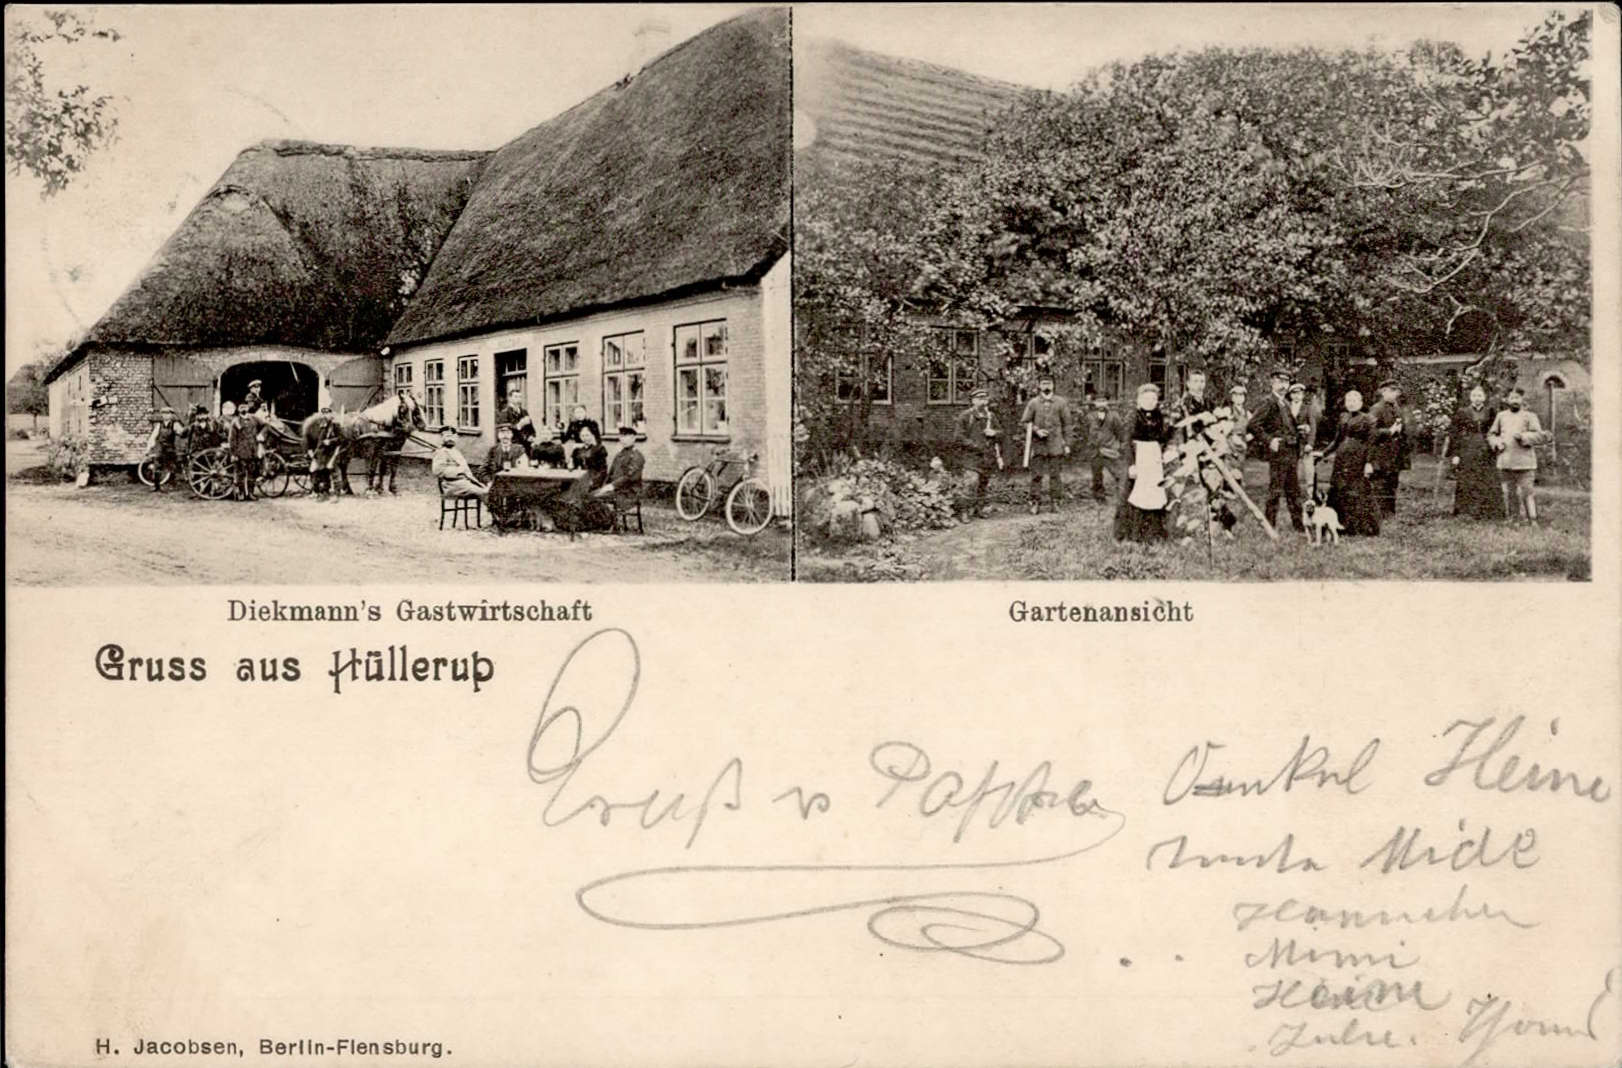 Diekmann's Gastwirtschaft
Gartenansicht
Gruss aus Hüllerup
Gruß v
Onkel Heine
Tante Mide
Hannchen
Mimi
Heine
H. Jacobsen, Berlin-Flensburg.